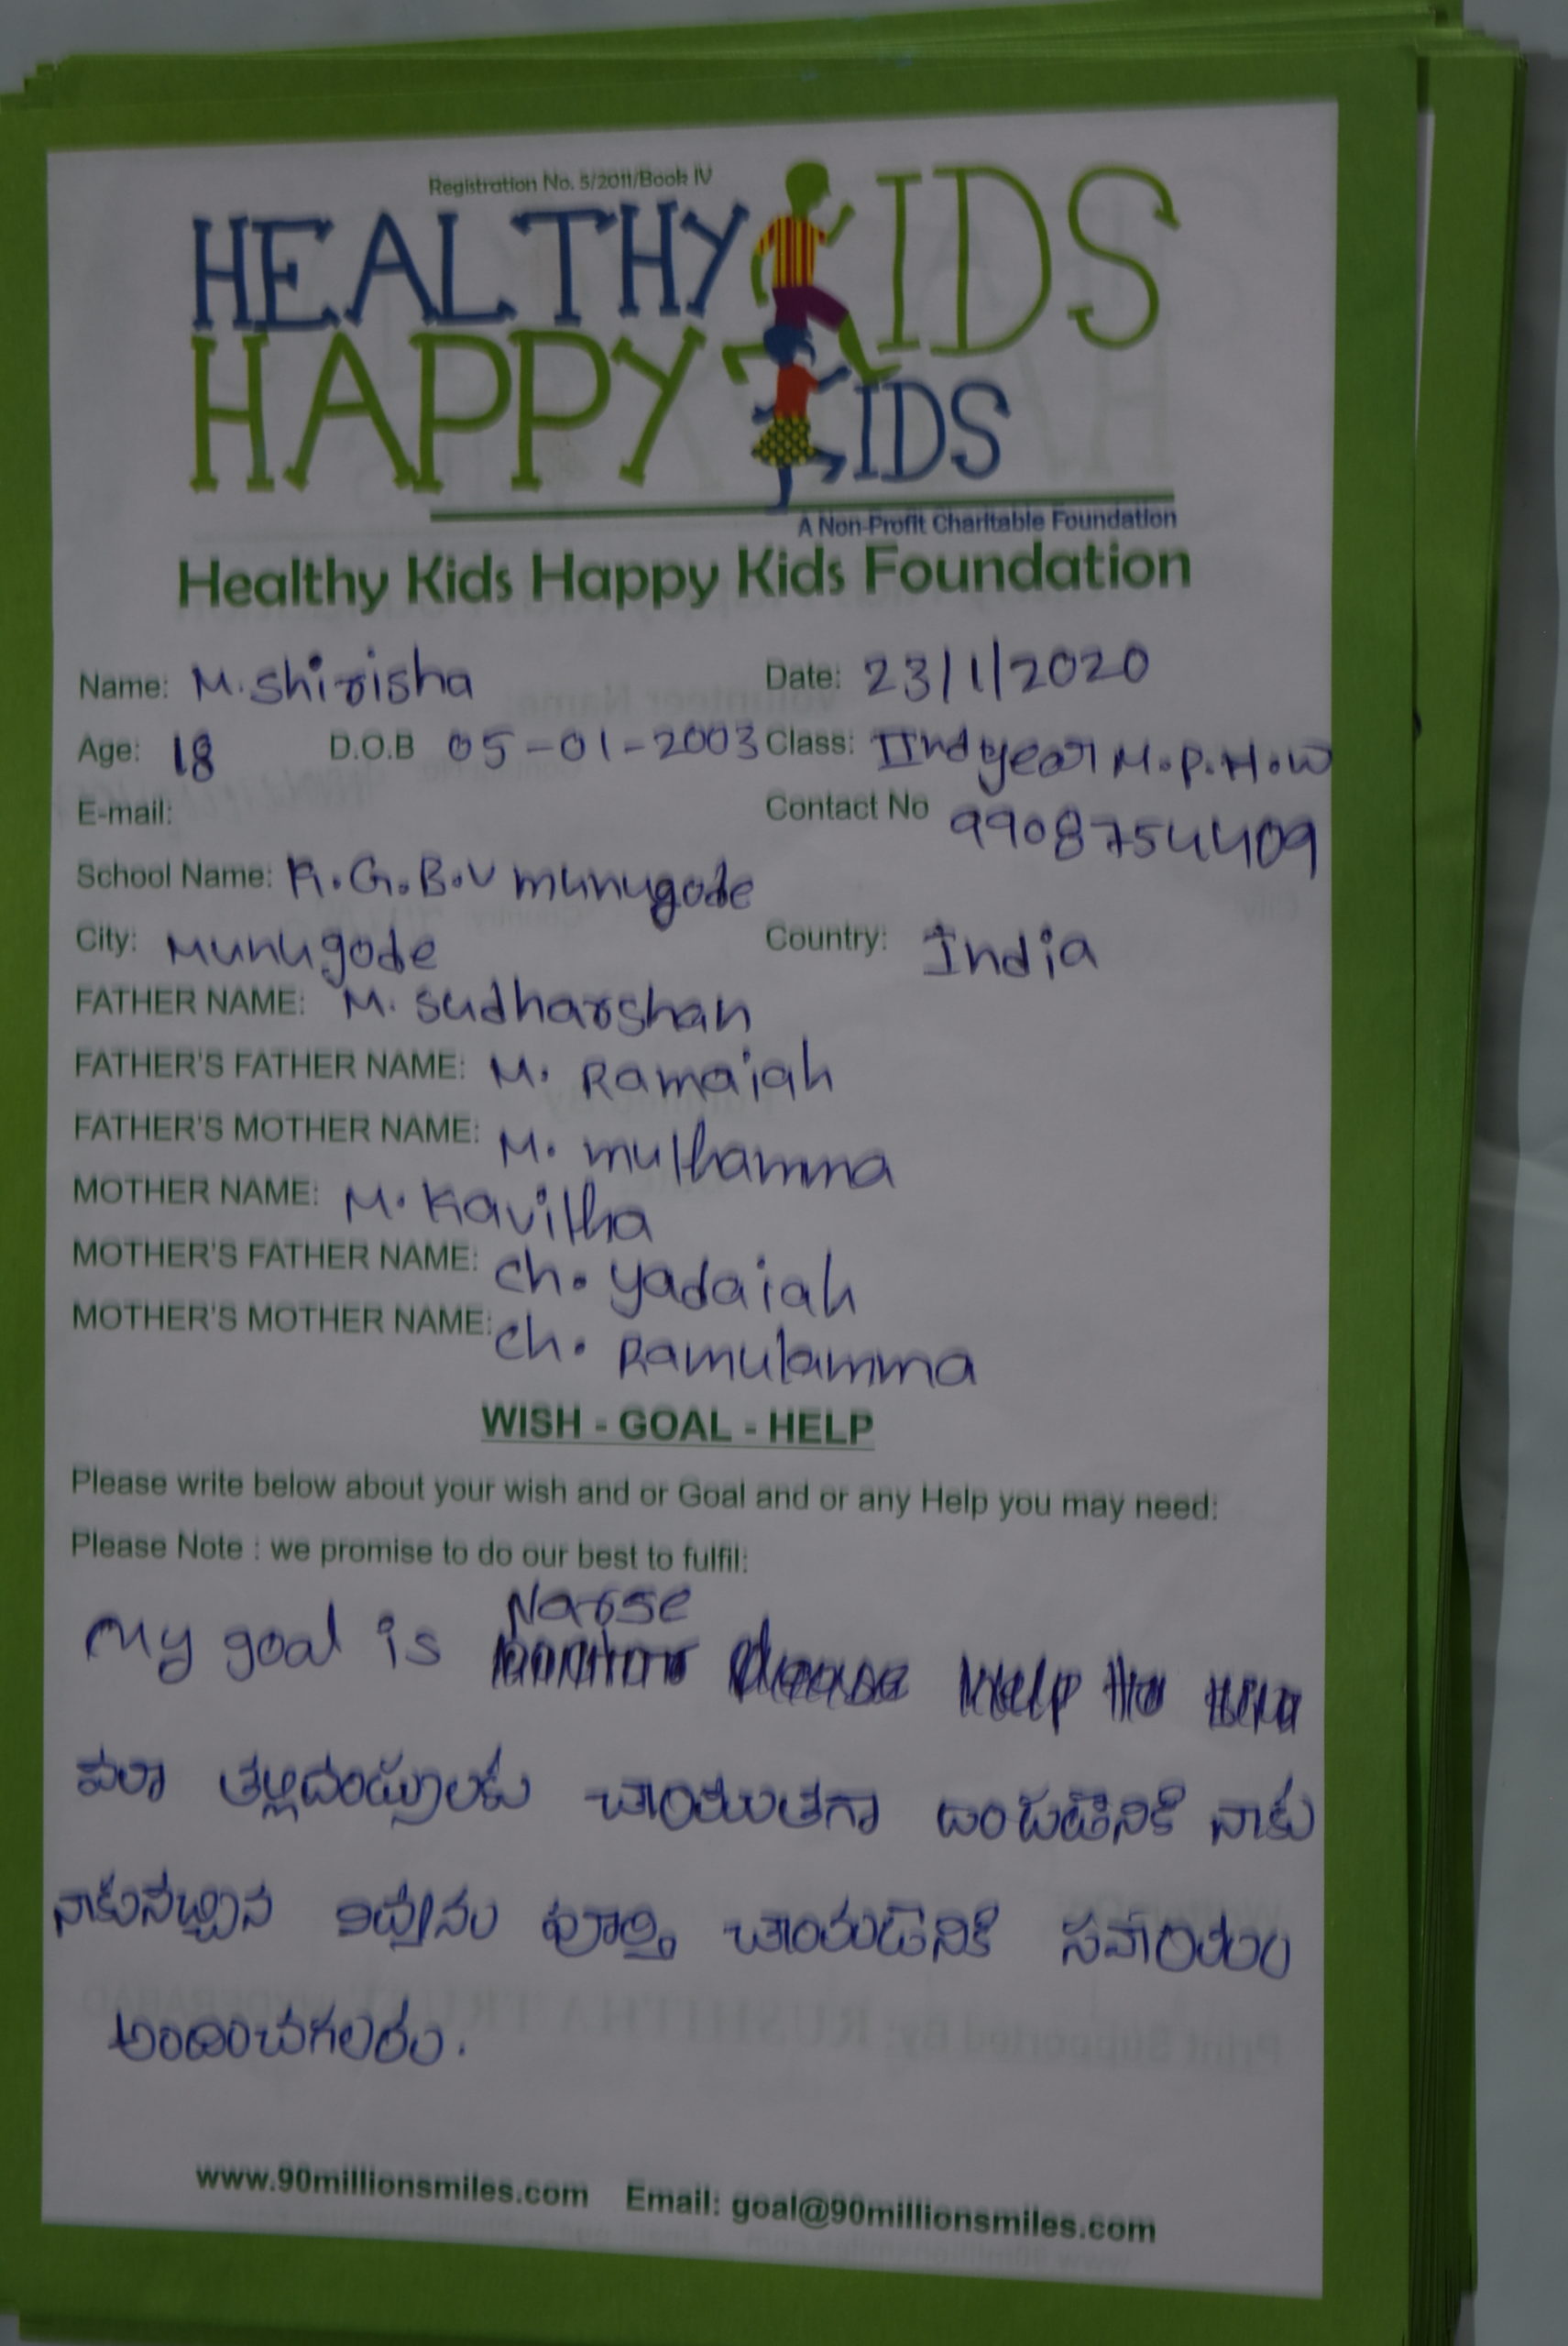 Registration No. 5/2011/Book IV
HEALTHY KIDS
HAPPY KIDS
A Non-Profit Charitable Foundation
Healthy Kids Happy Kids Foundation
Name: M. Shirisha Date: 23/1/2020
Age: 18 D.O.B 05-01-2003 Class: IInd year M.P.H.W
E-mail: Contact No 9908754409
School Name: K.G.B.V munugode
City: Munugode Country: India
FATHER NAME: M. Sudharshan
FATHER'S FATHER NAME: M. Ramaiah
FATHER'S MOTHER NAME: M. muthamma
MOTHER NAME: M. Kavitha
MOTHER'S FATHER NAME: Ch. Yadaiah
MOTHER'S MOTHER NAME: Ch. Ramulamma
WISH - GOAL - HELP
Please write below about your wish and or Goal and or any Help you may need:
Please Note : we promise to do our best to fulfil:
My goal is Narse
మా తల్లిదండ్రులకు చేయుతగా ఉండటానికి నాకు
నాకునచ్చిన పూర్తి చేయడానికి సహాయం
అందించగలరు.
www.90millionsmiles.com Email: goal@90millionsmiles.com